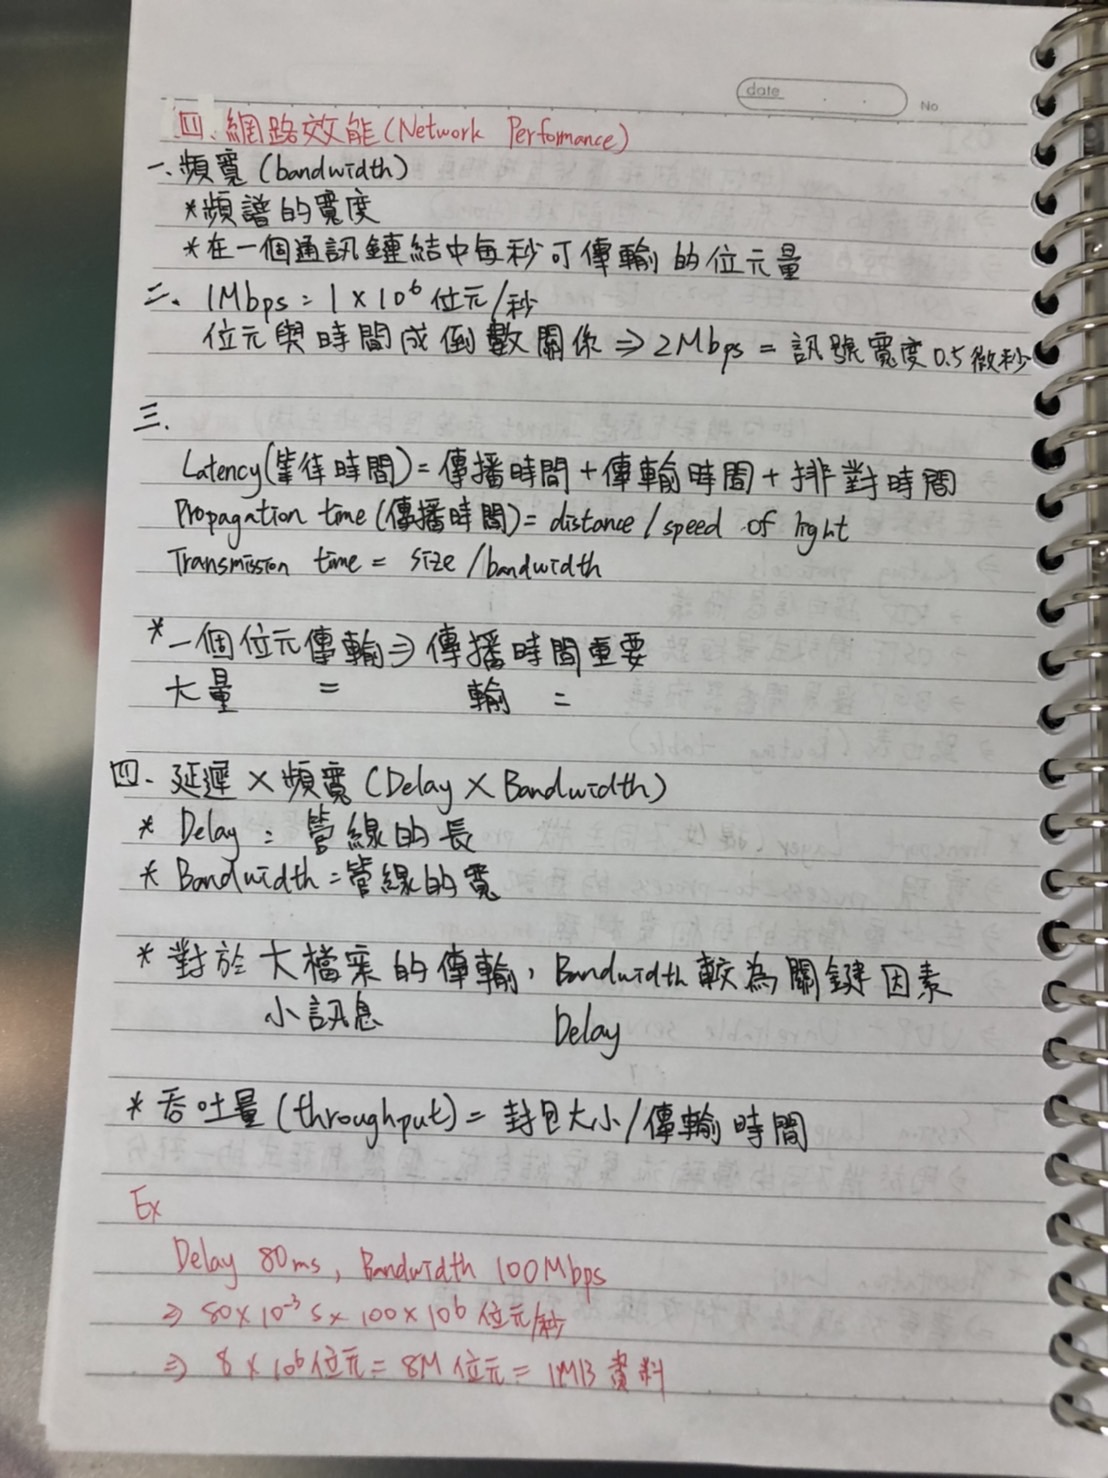 date
No
四、網路效能(Network Performance)
一、頻寬(bandwidth)
*頻譜的寬度
*在一個通訊鏈結中每秒可傳輸的位元量
二、1Mbps = 1 × 10⁶ 位元/秒
位元與時間成倒數關係 ⇒ 2Mbps = 訊號寬度0.5微秒
三、
Latency(等待時間) = 傳播時間 + 傳輸時間 + 排對時間
Propagation time(傳播時間) = distance / speed of light
Transmission time = size / bandwidth
*一個位元傳輸 ⇒ 傳播時間重要
大量 = 輸 =
四、延遲 × 頻寬 (Delay × Bandwidth)
* Delay = 管線的長
* Bandwidth = 管線的寬
* 對於大檔案的傳輸, Bandwidth 較為關鍵因素
小訊息 Delay
* 吞吐量(throughput) = 封包大小/傳輸時間
Ex
Delay 80ms, Bandwidth 100Mbps
⇒ 80×10⁻³ s × 100 × 10⁶ 位元/秒
⇒ 8 × 10⁶ 位元 = 8M 位元 = 1MB 資料